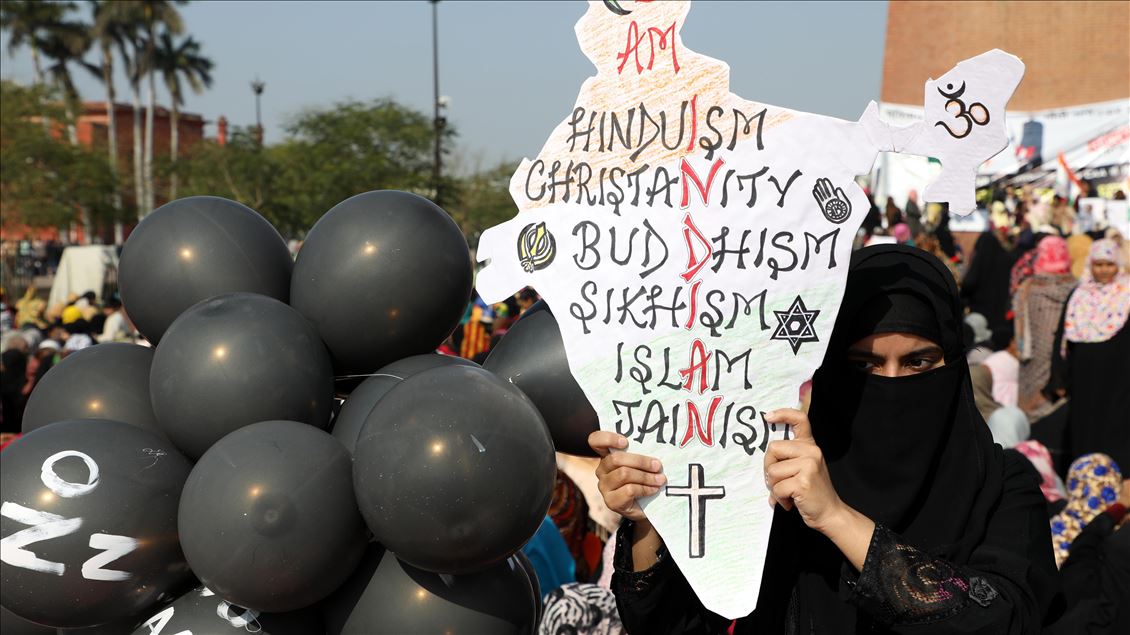 AM
HINDUISM
CHRISTANITY
BUDDHISM
SIKHISM
ISLAM
JAINISM
NO
N